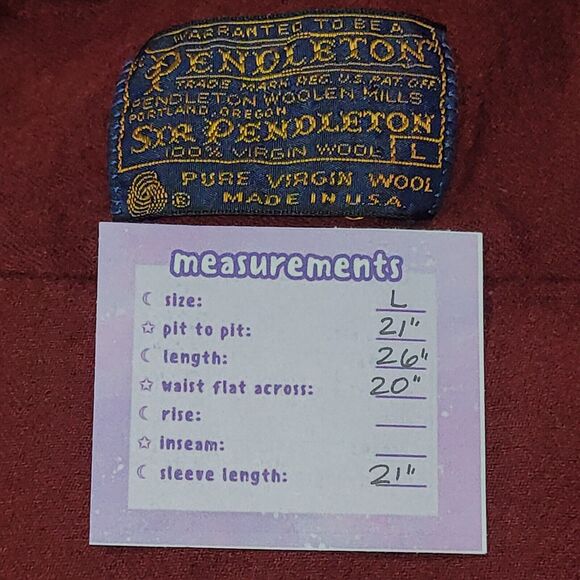 WARRANTED TO BE A
"PENDLETON"
TRADE MARK REG. U.S. PAT. OFF.
PENDLETON WOOLEN MILLS
PORTLAND, OREGON
SIR PENDLETON
100% VIRGIN WOOL L
PURE VIRGIN WOOL
® MADE IN U.S.A.
measurements
size: L
pit to pit: 21"
length: 26"
waist flat across: 20"
rise:
inseam:
sleeve length: 21"